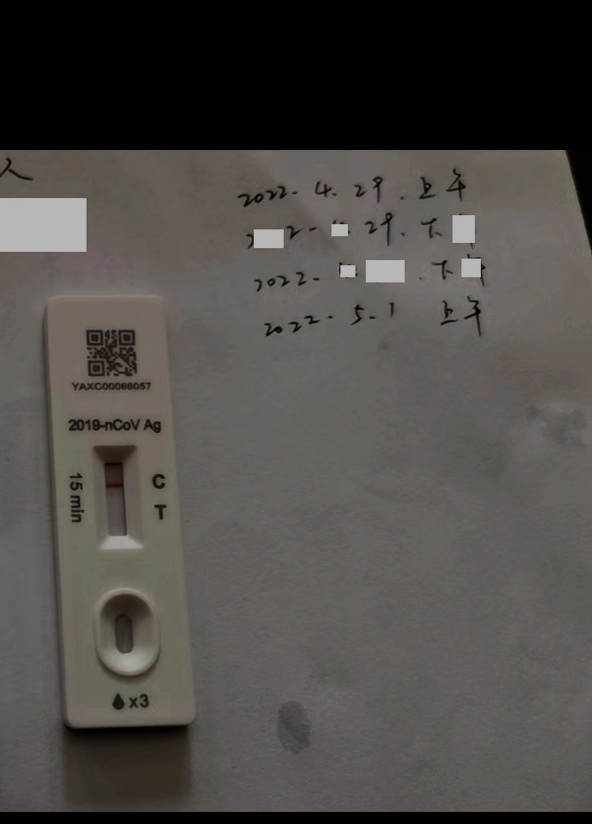 人
2022.4.29.上午
2-29.下
2022. .下
2022.5.1 上午
YAXC00086057
2019-nCoV Ag
15 min
C
T
x3